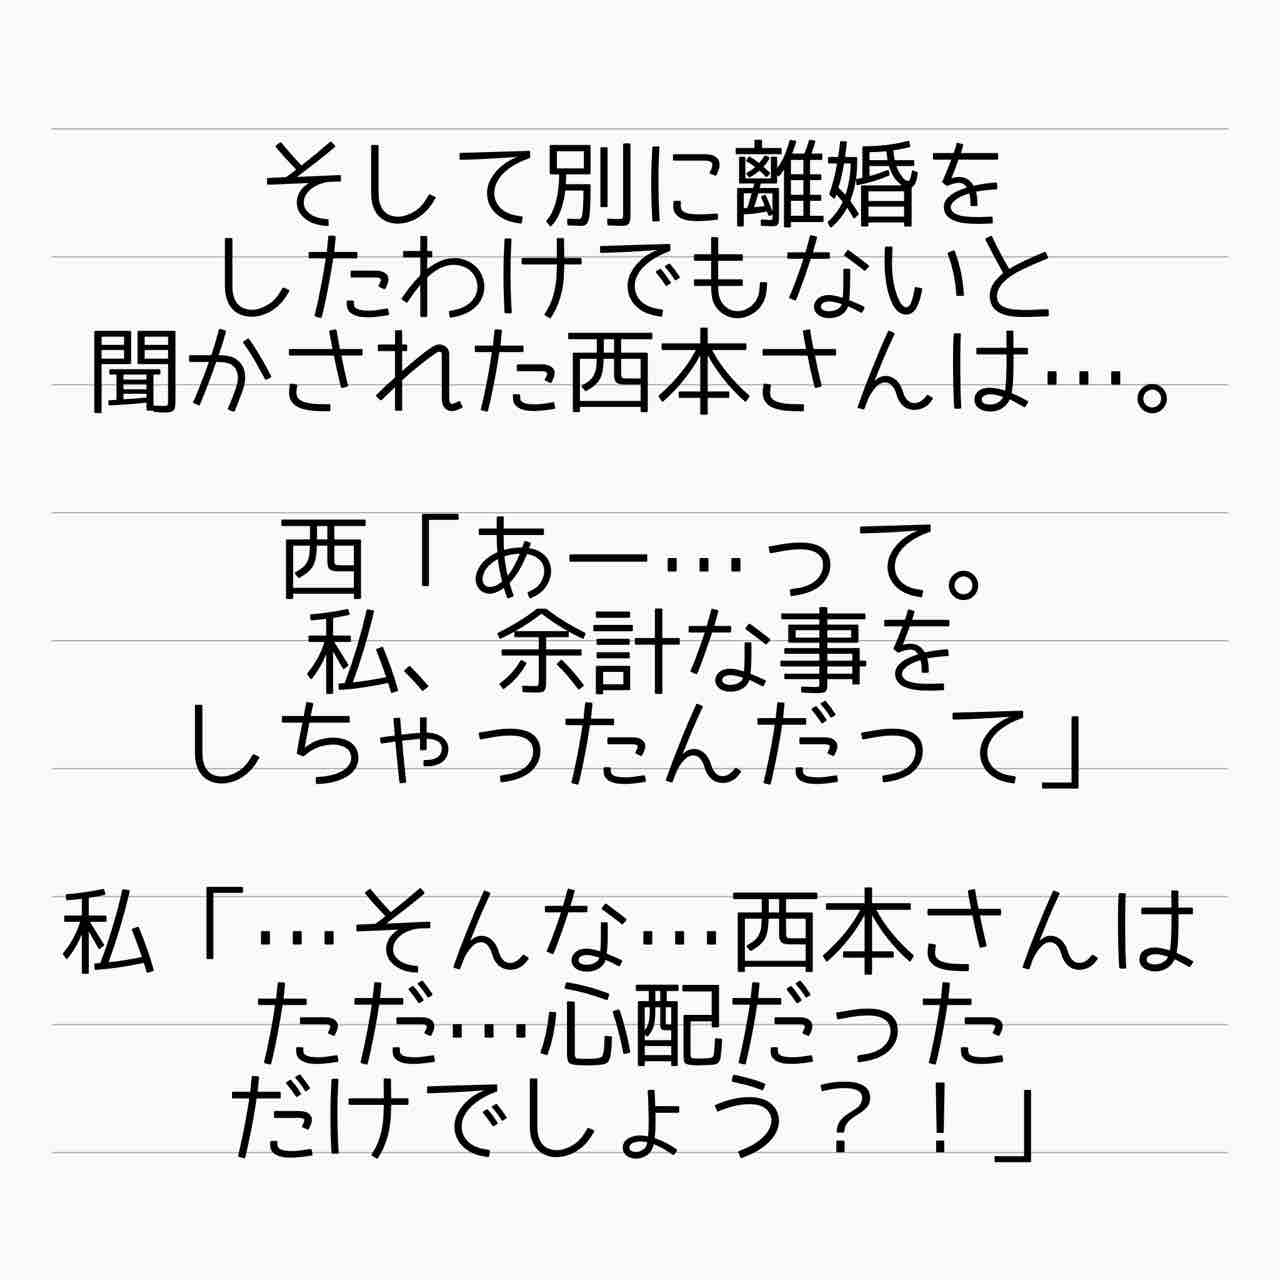 そして別に離婚を
したわけでもないと
聞かされた西本さんは…。
西「あー…って。
私、余計な事を
しちゃったんだって」
私「…そんな…西本さんは
ただ…心配だった
だけでしょう？！」